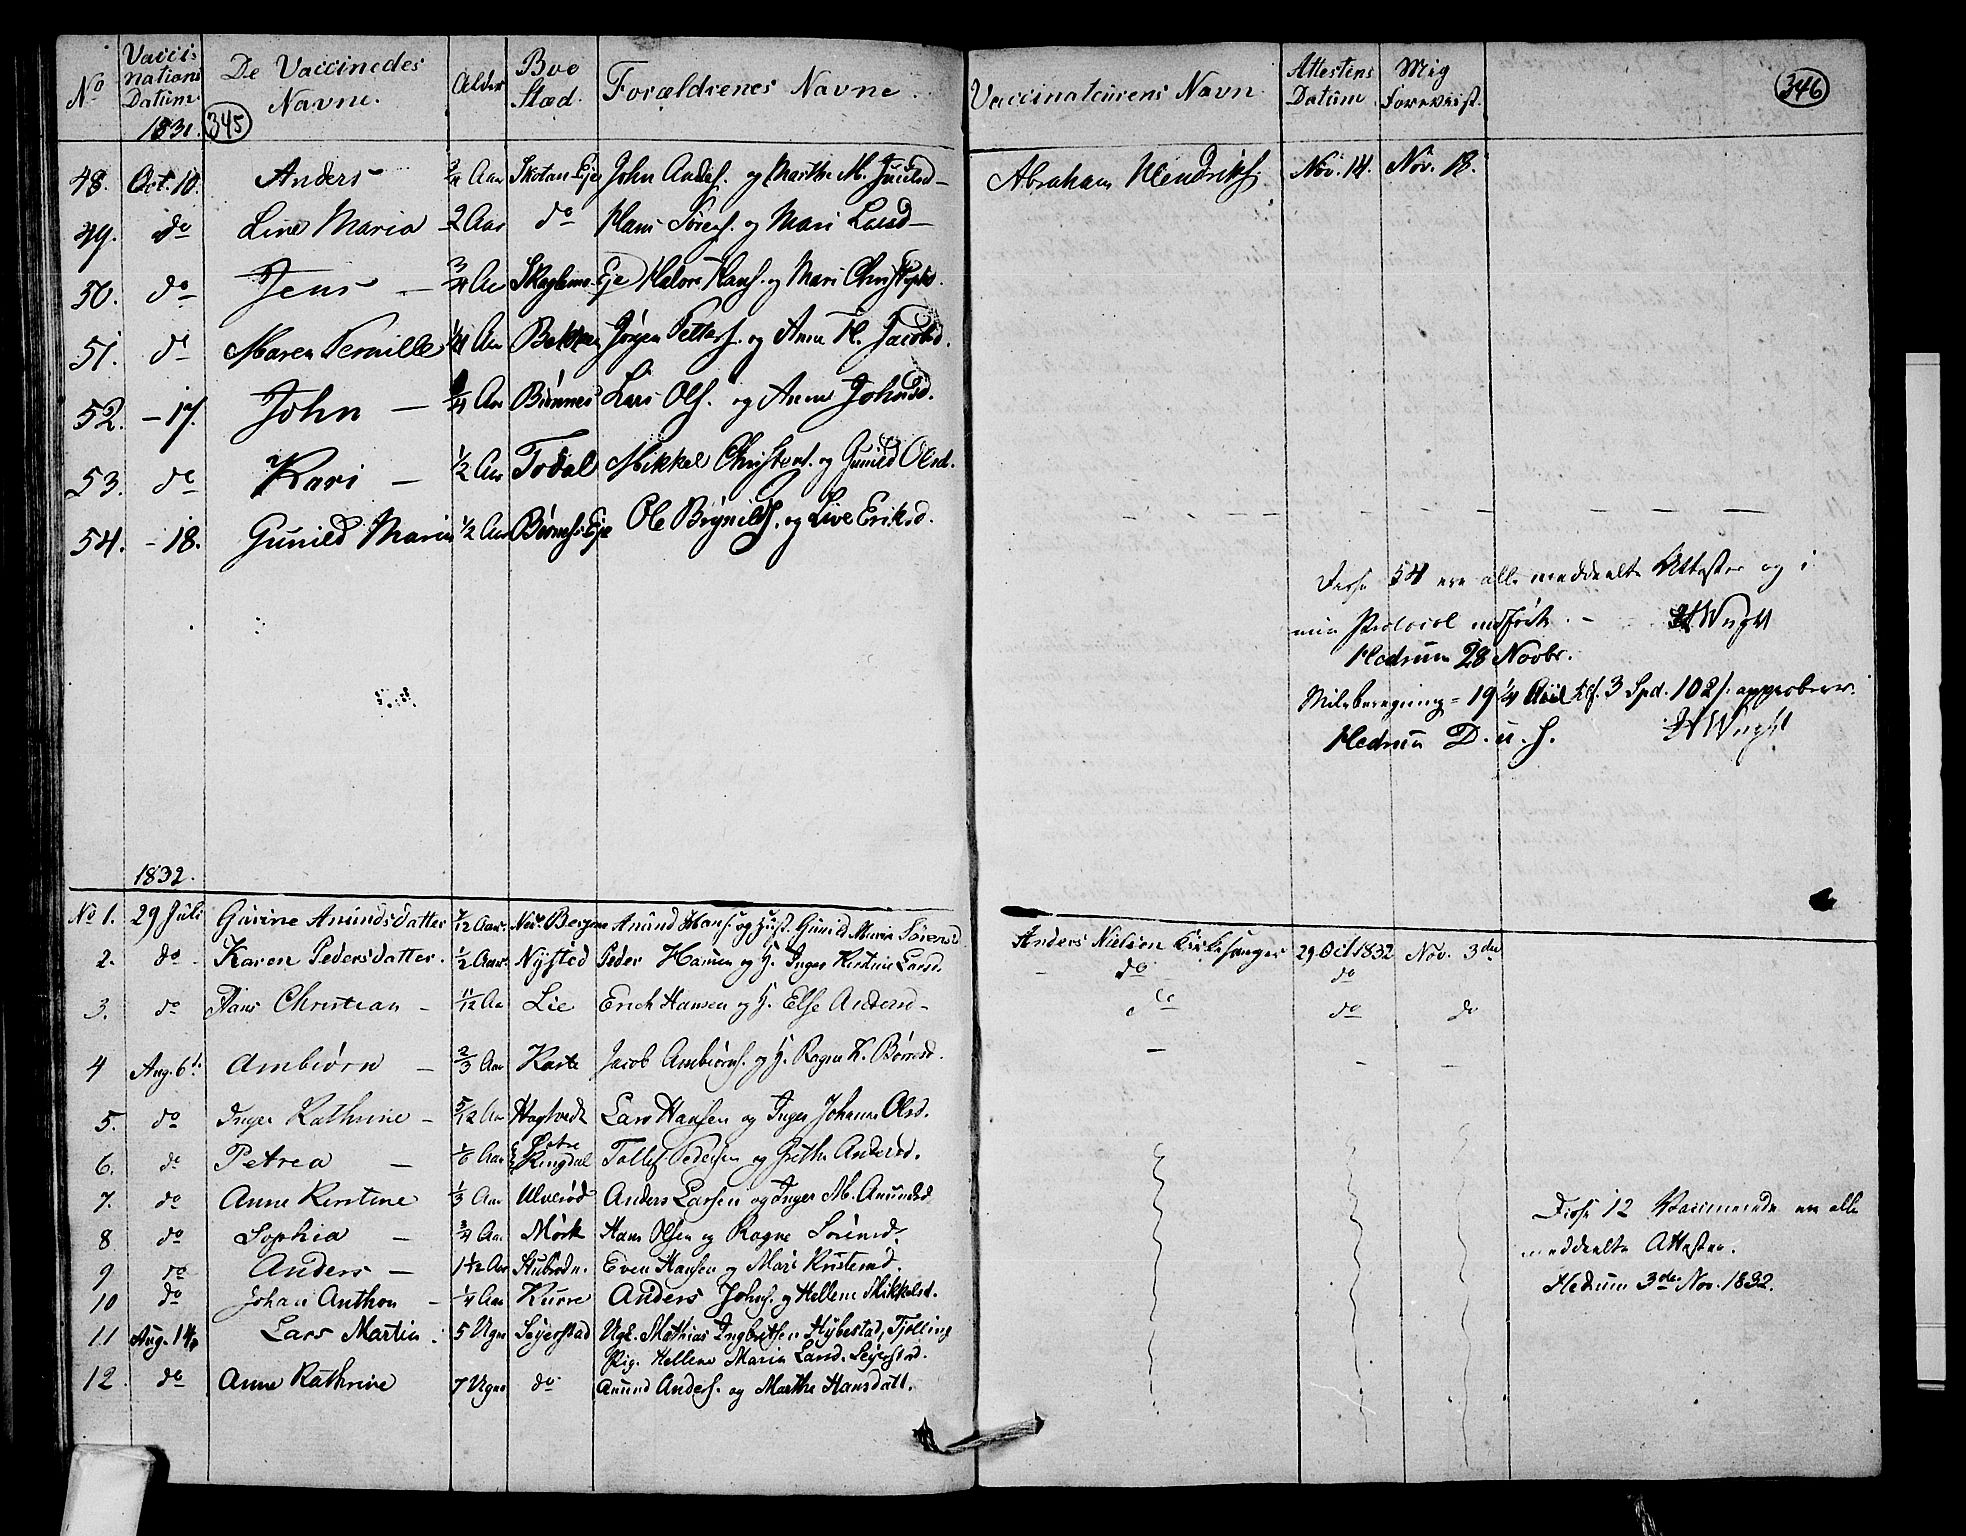 No Vaccinations Datum. 1831. De Vaccinedes Navne. Alder Boe Stæd. Forældrenes Navne Vaccinateurens Navn Attestens Datum Mig Foreviist.
345 346
48. Oct. 10. Anders — 3/4 Aar Skotan Eje John Anders. og Marthe M. Juulsd — Abraham Hendriks. Nov. 14. Nov. 18.
49. do Line Maria — 2 Aar do Hans Sørens. og Mari Larsd —
50. do Jens — 3/4 Aar Eje Halvor Hans. og Mari Christophs.
51. do Maren Pernille 1/4 Aar Bakken Jørgen Petters. og Anne K. Jacobsd.
52. – 17. John — 1/4 Aar Biønnes Lars Ols. og Anne Johnsd.
53. do Kari — 1/2 Aar Todal Mikkel Christens. og Gunild Olsd.
54. – 18. Gunild Maria 1/2 Aar Biønnes Eje Ole Brynilds. og Live Eriksd.
Disse 54 ere alle meddeelte Attester og i
min Protocol indført. – HWright
Hedrum 28 Novbr.
Milsberegning = 19 1/4 Miil 3 Spd. 102 s. approberes.
Hedrum D. u. s. HWright
1832.
No 1. 29 Juli Gurine Anundsdatter 7/12 Aar. Bergene Anund Hans. og Hust. Gunild Maria Sørensd Anders Nielsen Kirkesanger 29 Oct 1832 Nov. 3die
2. do Karen Pedersdatter. 1/2 Aar. Nysted Peder Hansen og H. Inger Kirstine Larsd. – do – do
3. do Hans Christian – 11/12 Aar Lie Erich Hansen og H. Else Andersd – do do do
4 Aug. 6te Ambiørn – 2/3 Aar Kaste Jacob Ambiørns. og H. Ragne K. Børresd.
5. do Inger Kathrine – 5/12 Aar Hagtvedt Lars Hansen og Inger Johanne Olsd.
6. do Petrea – 1/6 Aar Østre Ringdal Tollef Pedersen og Grethe Andersd.
7. do Anne Kirstine 1/3 Aar Ulverød Anders Larsen og Inger M. Anundsd
8 do Sophia – 3/4 Aar Mørk Hans Olsen og Ragne Sørensd.
9 do Anders – 1 1/2 Aar Stubrødn. Even Hansen og Mari Knutsd.
10 do Johan Anthon – 1/4 Aar Kurre Anders Johs. og Hellene Mikkelsd.
11 Aug. 14 Lars Martin. 5 Ugr Seyerstad Ugk. Mathias Ingbretsen Hybestad, Tjølling
Pig. Hellene Maria Larsd. Seyerstad.
12 do Anne Kathrine 7 Ugr do Anund Anders. og Marthe Hansdatt.
Disse 12 Vaccinerede ere alle
meddeelte Attester.
Hedrum 3die Nov. 1832.